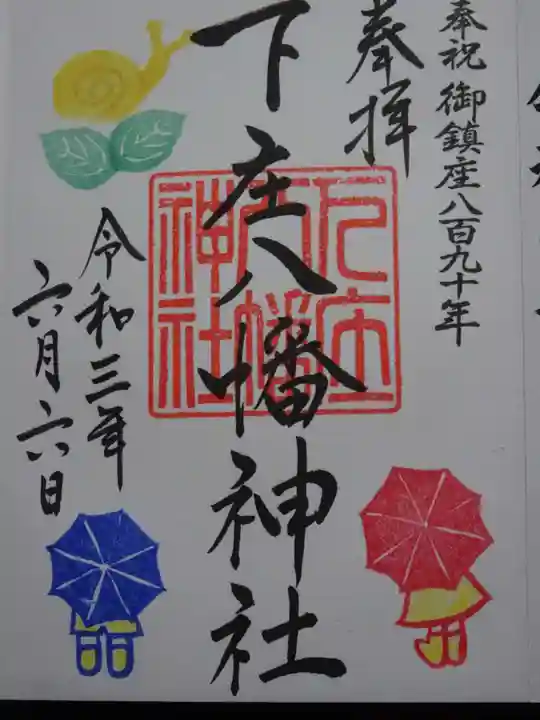 奉祝御鎮座八百九十年
奉拝
下庄八幡神社
下庄
八幡
神社
令和三年
六月六日